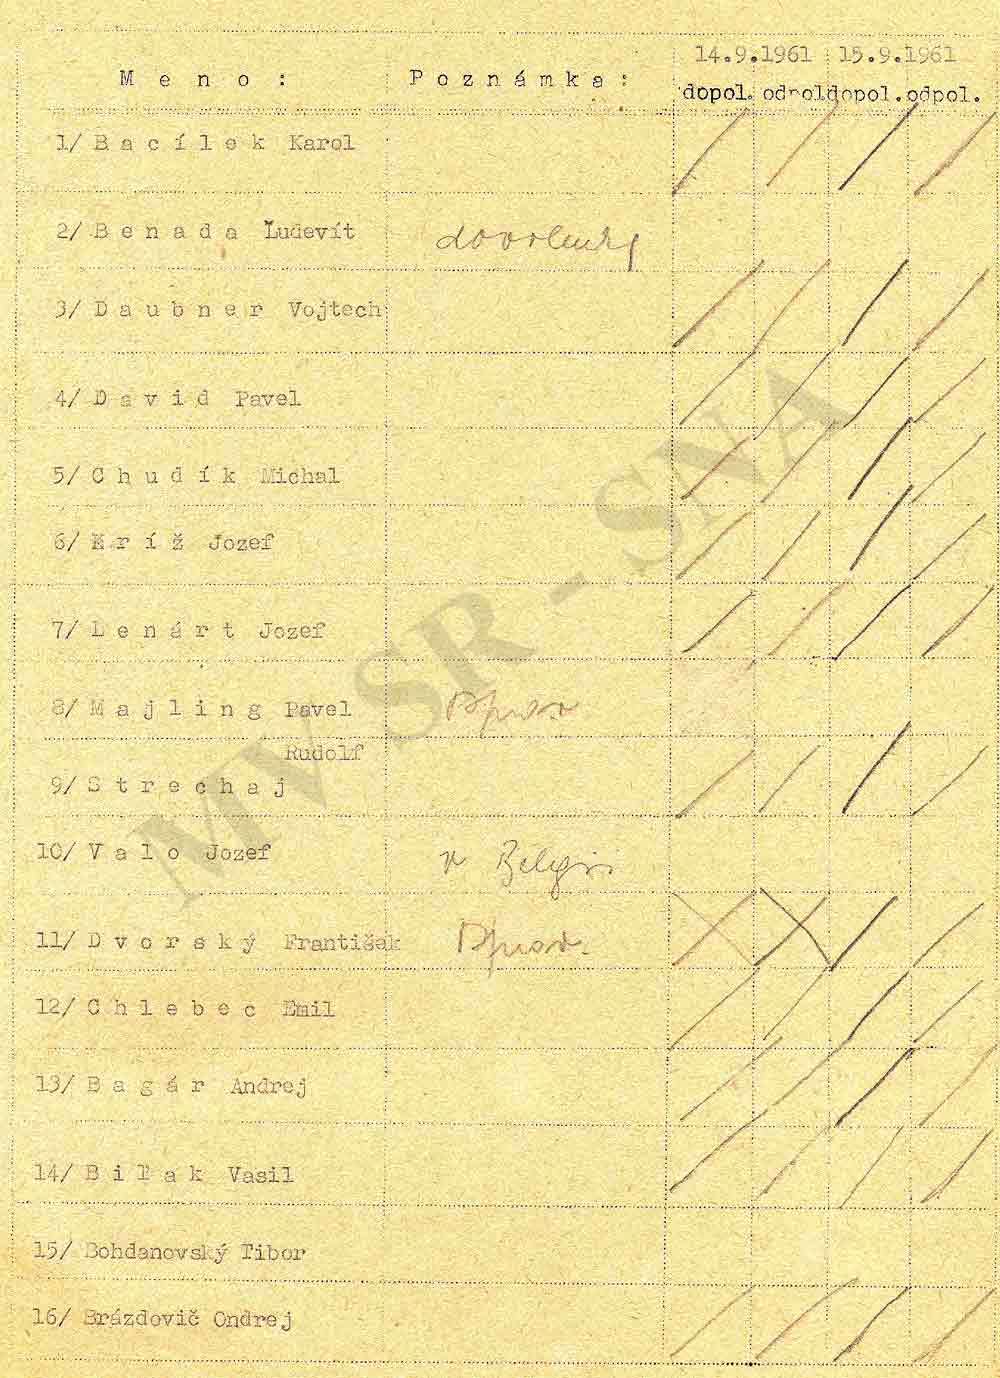 14.9.1961 15.9.1961
M e n o : P o z n á m k a :
dopol. odpol dopol. odpol.
1/ B a c í l e k Karol
2/ B e n a d a Ľudevít dovolenky
3/ D a u b n e r Vojtech
4/ D a v i d Pavel
5/ C h u d í k Michal
6/ K r í ž Jozef
7/ L e n á r t Jozef
8/ M a j l i n g Pavel
Rudolf
9/ S t r e c h a j
10/ V a l o Jozef v Belgii
11/ D v o r s k ý František
12/ C h l e b e c Emil
13/ B a g á r Andrej
14/ B i ľ a k Vasil
15/ Bohdanovský Tibor
16/ Brázdovič Ondrej
MV SR - SNA